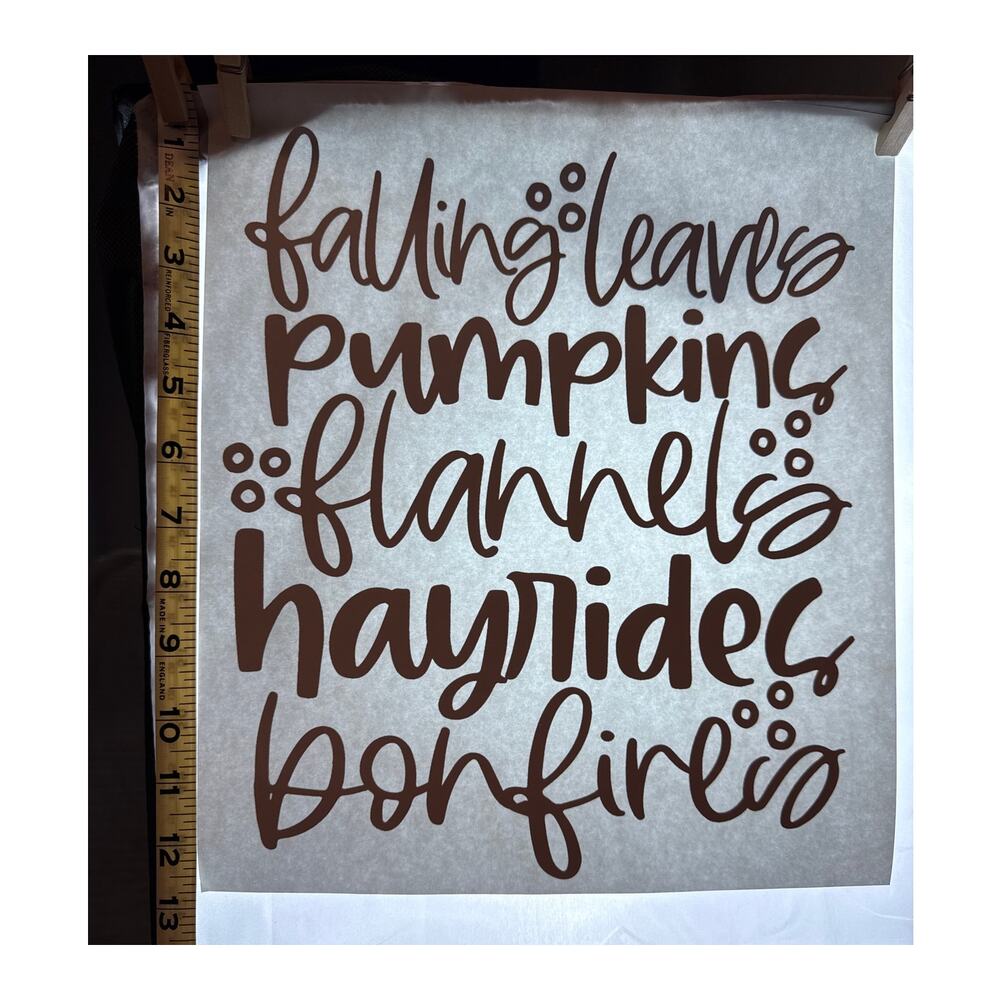 falling leaves
pumpkins
flannels
hayrides
bonfires
1 DEAN 2 IN 3 REINFORCED 4 FIBERGLASS 5 6 7 8 MADE IN 9 ENGLAND 10 11 12 13